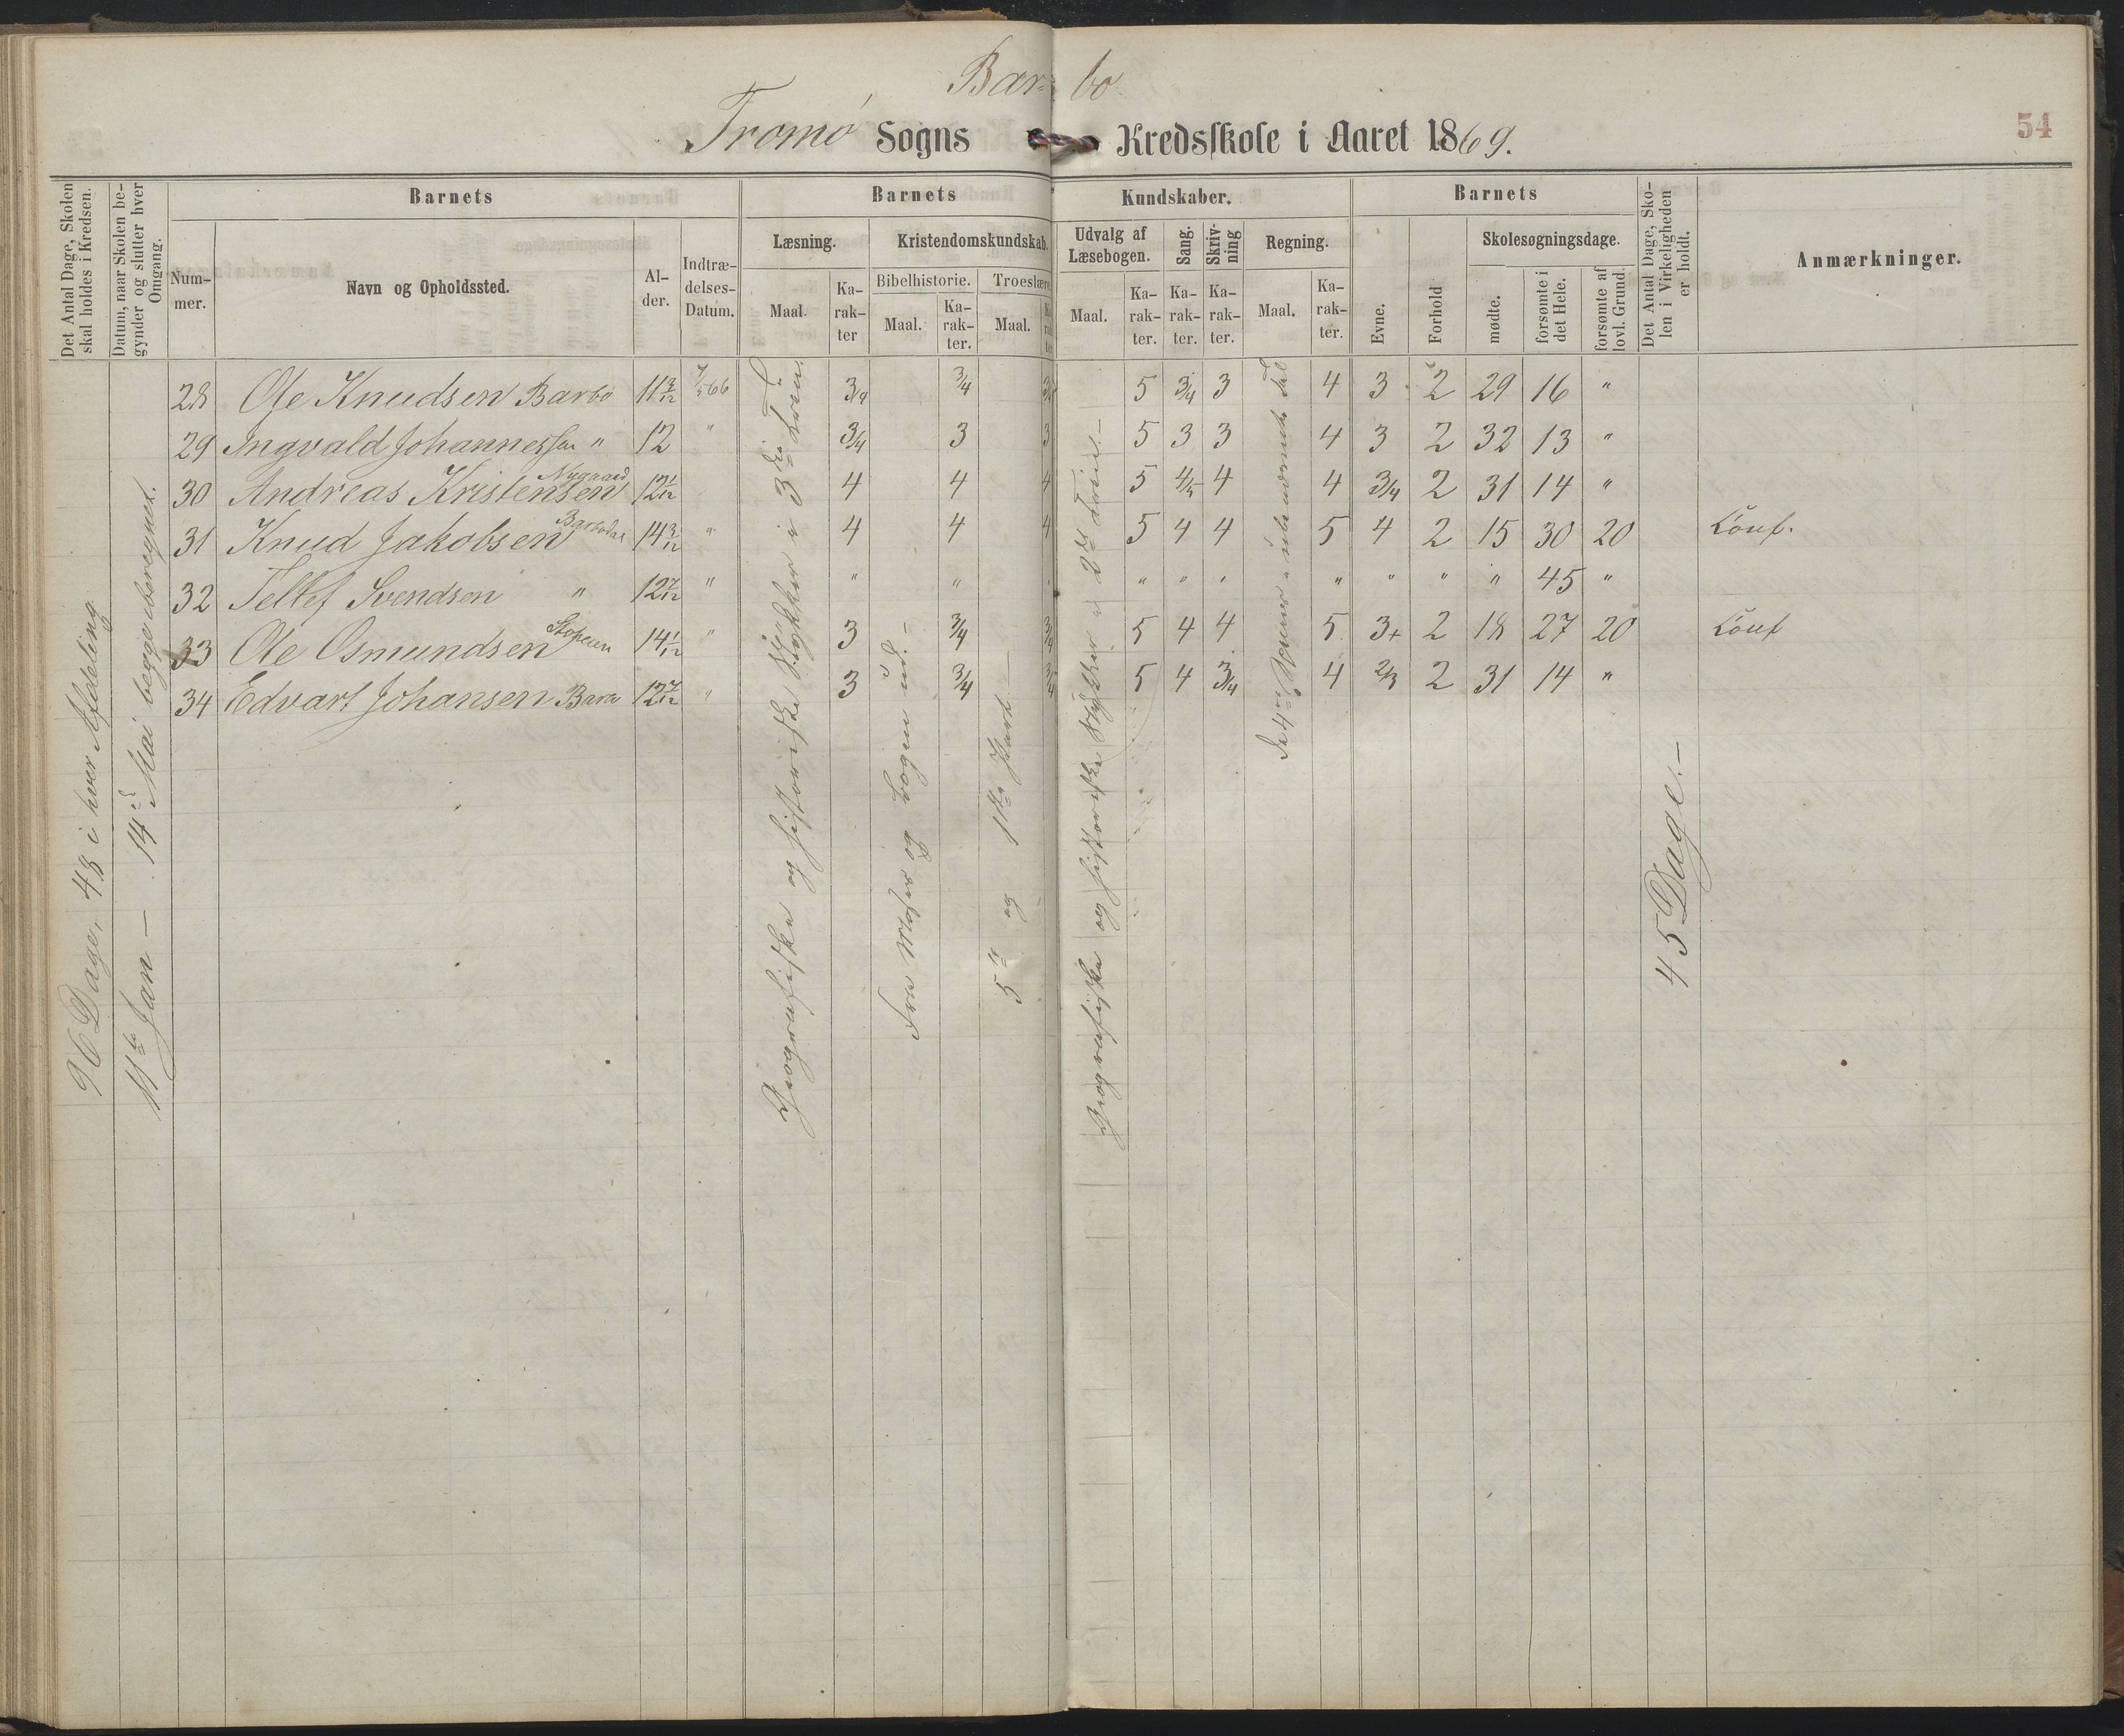 Barbo
Tromø Sogns Kredsskole i Aaret 1869.
54
Det Antal Dage, Skolen skal holdes i Kredsen.
Datum, naar Skolen begynder og slutter hver Omgang.
Barnets
Nummer.
Navn og Opholdssted.
Alder.
Indtrædelses-Datum.
Barnets Kundskaber.
Læsning.
Maal.
Karakter
Kristendomskundskab.
Bibelhistorie.
Maal.
Karakter.
Troeslære
Maal.
Udvalg af Læsebogen.
Maal.
Karakter.
Sang.
Karakter.
Skrivning
Karakter.
Regning.
Maal.
Karakter.
Barnets
Evne.
Forhold
Skolesøgningsdage.
mødte.
forsømte i det Hele.
forsømte af lovl. Grund.
Det Antal Dage, Skolen i Virkeligheden er holdt.
Anmærkninger.
96 Dage, 48 i hver Afdeling
11te Jan – 14de Mai begge iberegnet.
Geografiske og historiske Stykker i 3die Trin
Fra Moses og Bogen ud. –
5te og 1ste Part –
Geografiske og historiske Stykker i 2det Trin. –
45 Dage. –
28 Ole Knudsen Barbo 11 3/12 7/5 66 3/4 3/4 5 3/4 3 4 3 2 29 16 "
29 Ingvald Johannessen " 12 " 3/4 3 3 5 3 3 4 3 2 32 13 "
30 Andreas Kristensen Nygaard 12 1/12 4 4 4 5 4/5 4 4 3/4 2 31 14 "
31 Knud Jakobsen Barbodal 14 3/12 " 4 4 4 5 4 4 5 4 2 15 30 20 Konf.
32 Tellef Svendsen " 12 7/12 " " " " " " " " " " " 45 "
33 Ole Osmundsen 14 1/12 " 3 3/4 3/4 5 4 4 5 3+ 2 18 27 20 Konf
34 Edvart Johansen 12 7/12 " 3 3/4 3/4 5 4 3/4 4 2/3 2 31 14 "